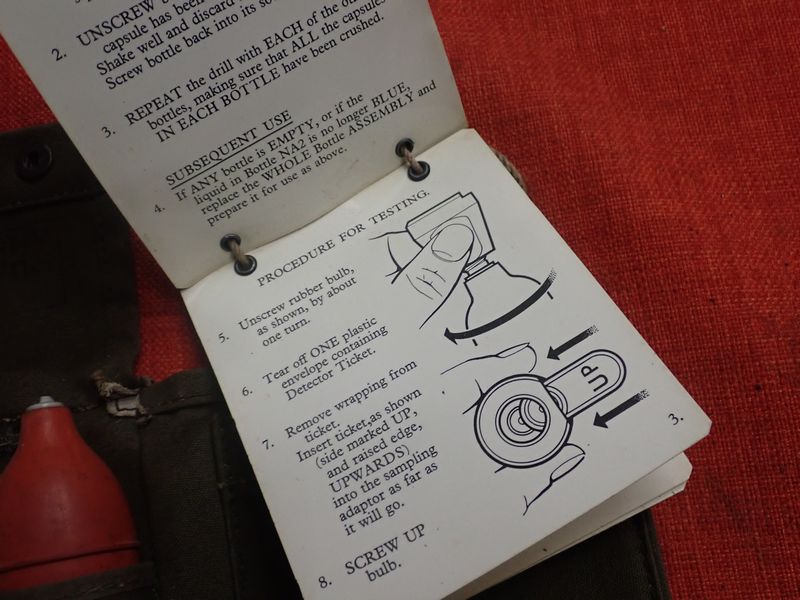 2. UNSCREW
capsule has been
Shake well and discard
Screw bottle back into its
3. REPEAT the drill with EACH of the
bottles, making sure that ALL the capsules
IN EACH BOTTLE have been crushed.
SUBSEQUENT USE
4. If ANY bottle is EMPTY, or if the
liquid in Bottle NA2 is no longer BLUE,
replace the WHOLE Bottle ASSEMBLY and
prepare it for use as above.
PROCEDURE FOR TESTING.
5. Unscrew rubber bulb,
as shown, by about
one turn.
6. Tear off ONE plastic
envelope containing
Detector Ticket.
7. Remove wrapping from
ticket.
Insert ticket,as shown
(side marked UP,
and raised edge,
UPWARDS)
into the sampling
adaptor as far as
it will go.
8. SCREW UP
bulb.
UP
3.